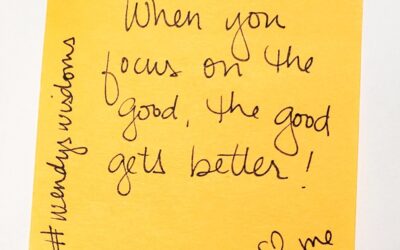 When you
focus on the
good, the good
gets better!
♡ me
#wendyswisdoms